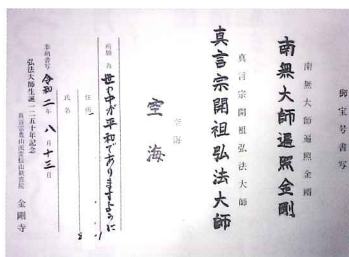 御宝号書写
南無大師遍照金剛
南無大師遍照金剛
真言宗開祖弘法大師
真言宗開祖弘法大師
空海
空海
所願 為 世の中が平和でありますように
住所
氏名
奉納書写 令和二年 八月十三日
弘法大師生誕一二五十年記念
金剛寺